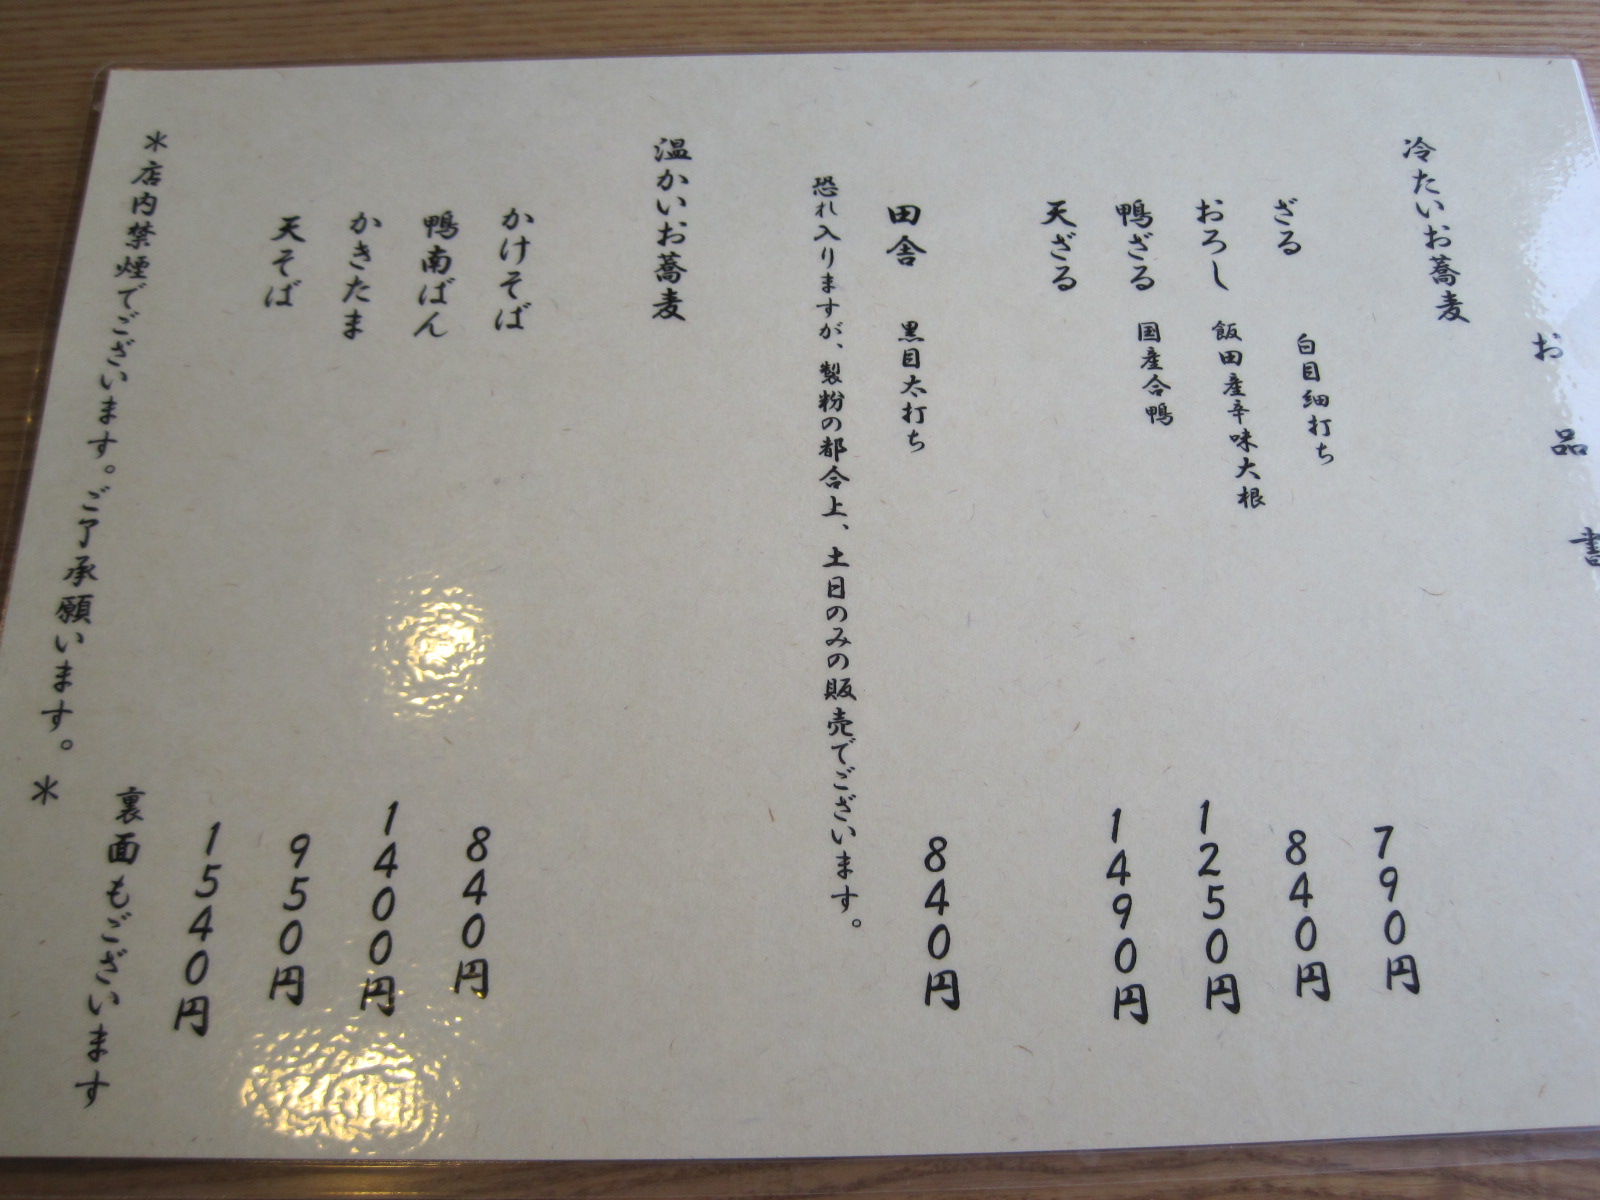 お品書
冷たいお蕎麦
ざる 白目細打ち 790円
おろし 飯田産辛味大根 840円
鴨ざる 国産合鴨 1250円
天ざる 1490円
田舎 黒目太打ち 840円
恐れ入りますが、製粉の都合上、土日のみの販売でございます。
温かいお蕎麦
かけそば 840円
鴨南ばん 1400円
かきたま 950円
天そば 1540円
＊店内禁煙でございます。ご了承願います。＊
裏面もございます